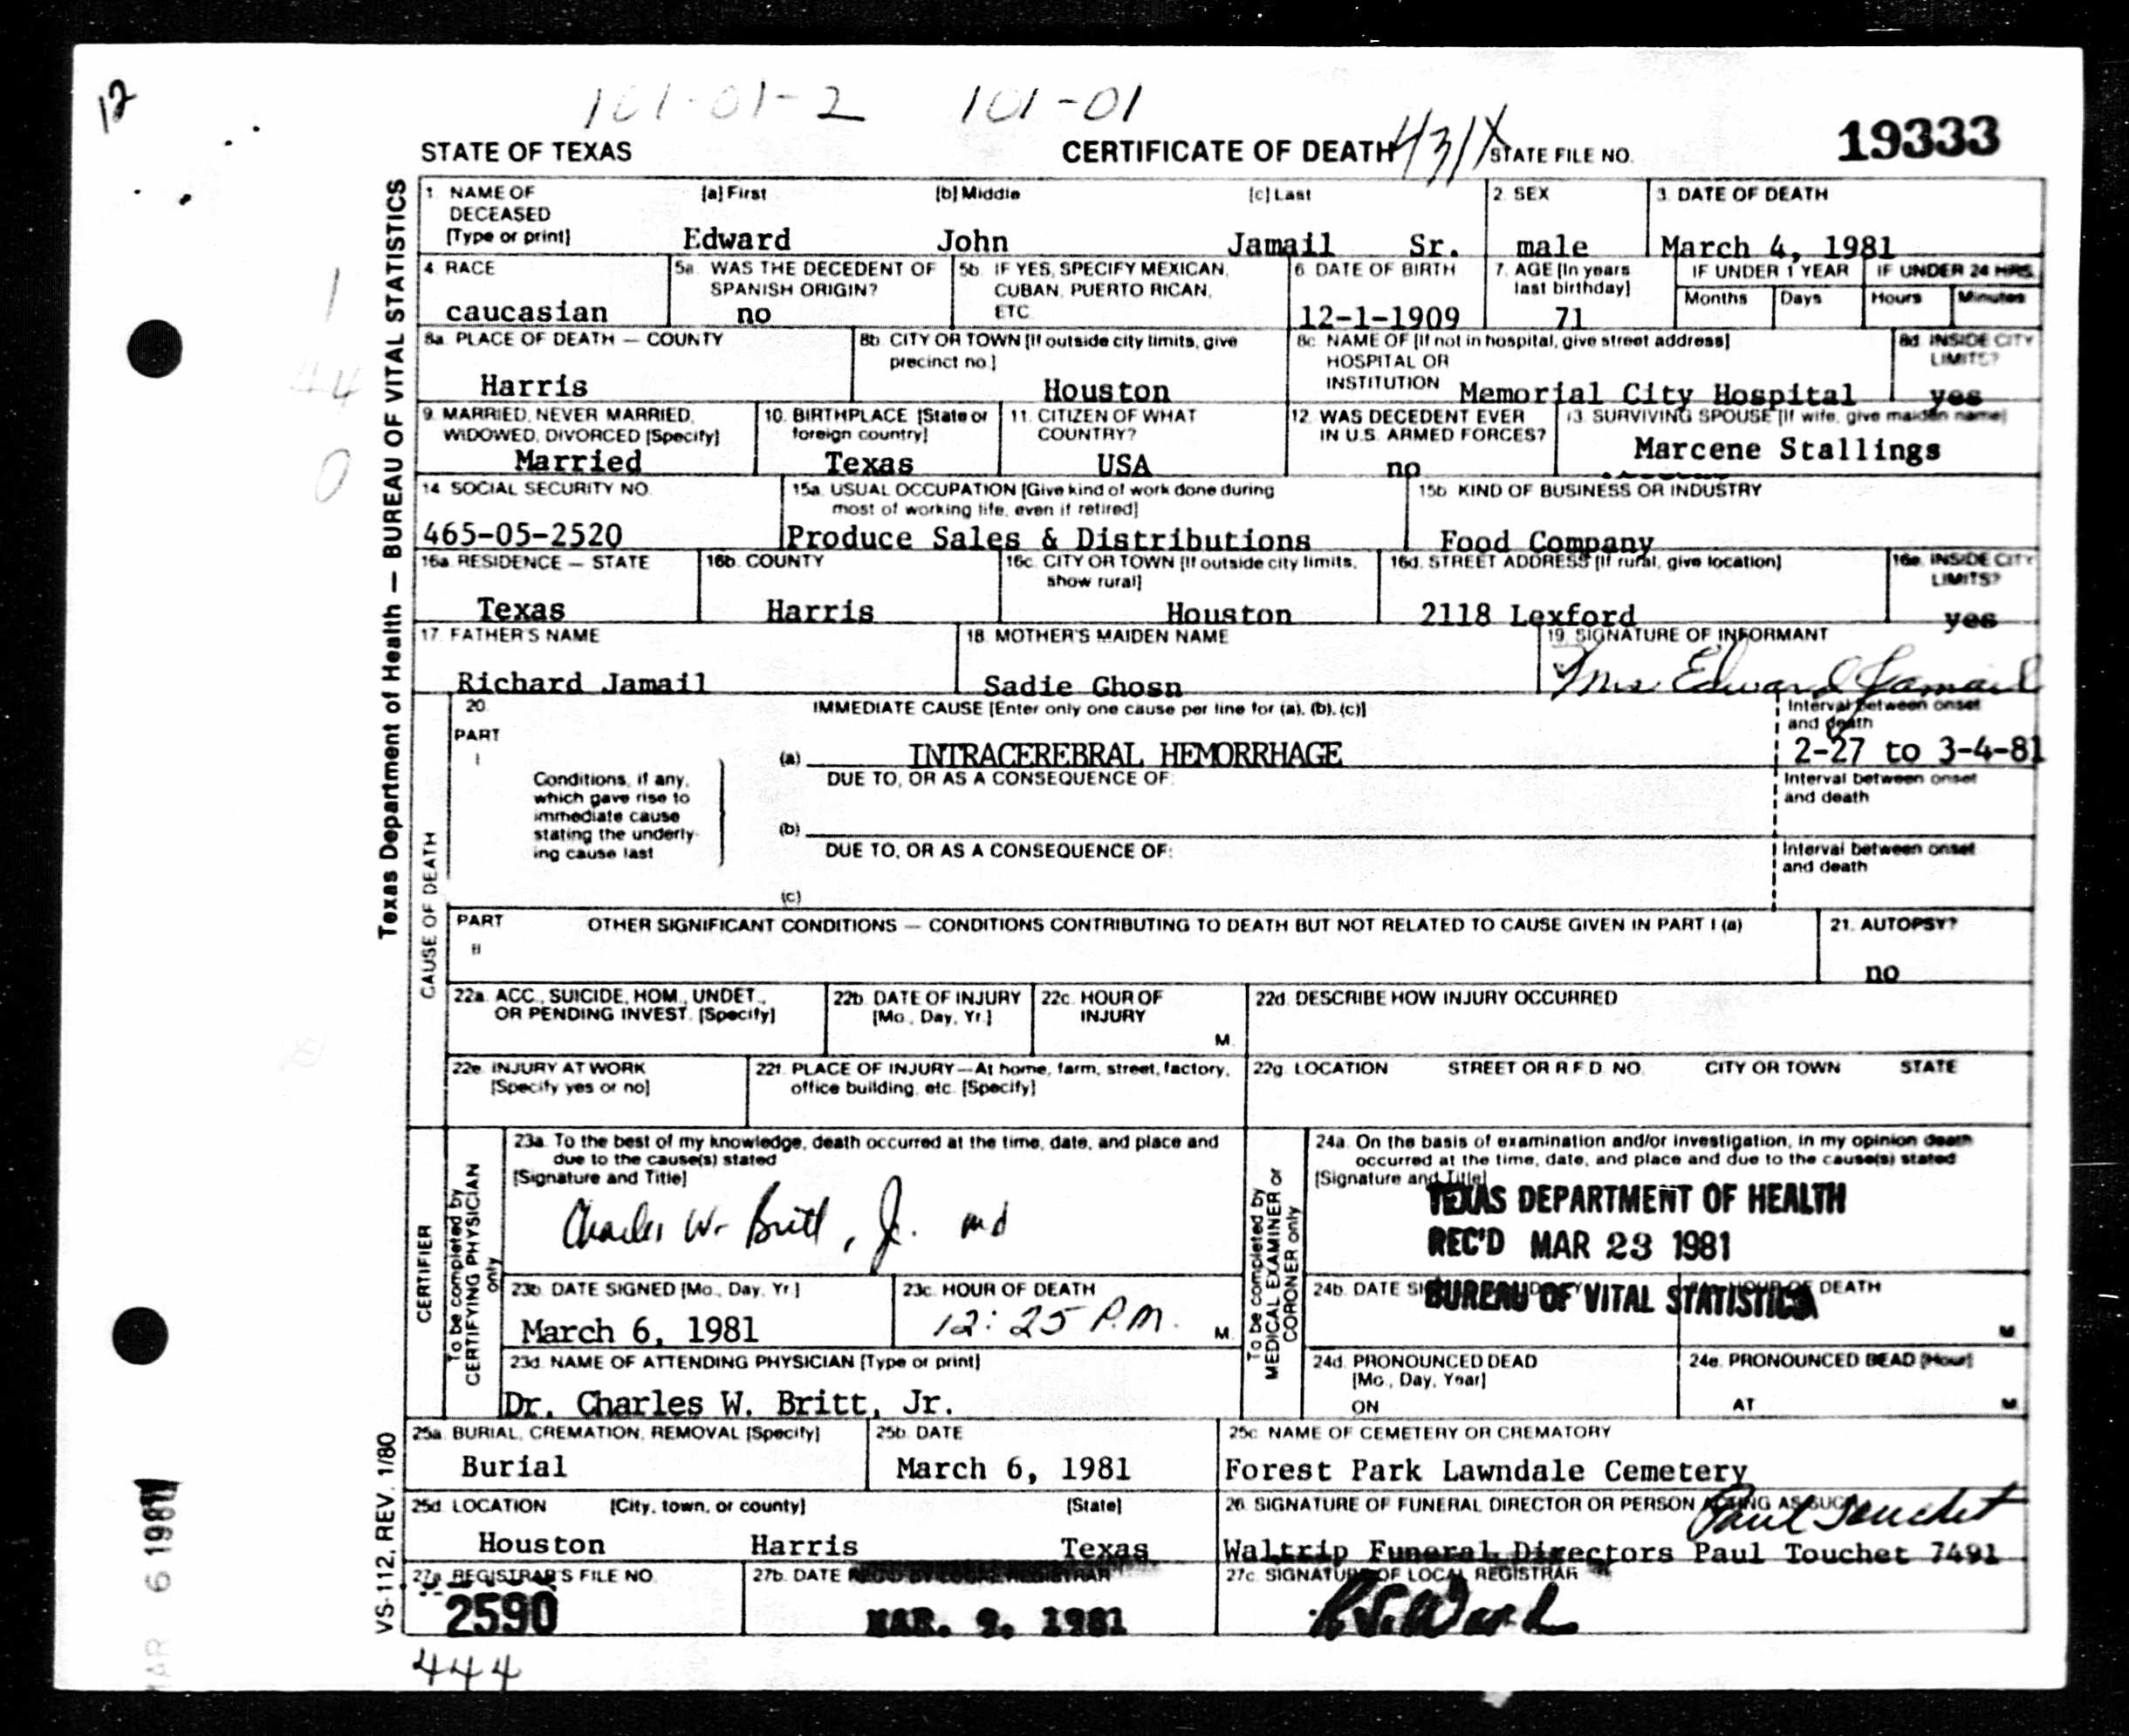 12
101-01-2 101-01
STATE OF TEXAS CERTIFICATE OF DEATH 431X STATE FILE NO. 19333
Texas Department of Health — BUREAU OF VITAL STATISTICS
1. NAME OF DECEASED [Type or print] [a] First [b] Middle [c] Last 2. SEX 3. DATE OF DEATH
Edward John Jamail Sr. male March 4, 1981
4. RACE 5a. WAS THE DECEDENT OF SPANISH ORIGIN? 5b. IF YES, SPECIFY MEXICAN, CUBAN, PUERTO RICAN, ETC 6. DATE OF BIRTH 7. AGE [In years last birthday] IF UNDER 1 YEAR IF UNDER 24 HRS.
Months Days Hours Minutes
caucasian no 12-1-1909 71
8a. PLACE OF DEATH — COUNTY 8b. CITY OR TOWN [If outside city limits, give precinct no.] 8c. NAME OF [If not in hospital, give street address] HOSPITAL OR INSTITUTION 8d. INSIDE CITY LIMITS?
Harris Houston Memorial City Hospital yes
9. MARRIED, NEVER MARRIED, WIDOWED, DIVORCED [Specify] 10. BIRTHPLACE [State or foreign country] 11. CITIZEN OF WHAT COUNTRY? 12. WAS DECEDENT EVER IN U.S. ARMED FORCES? 13. SURVIVING SPOUSE [If wife, give maiden name]
Married Texas USA no Marcene Stallings
14. SOCIAL SECURITY NO. 15a. USUAL OCCUPATION [Give kind of work done during most of working life, even if retired] 15b. KIND OF BUSINESS OR INDUSTRY
465-05-2520 Produce Sales & Distributions Food Company
16a. RESIDENCE — STATE 16b. COUNTY 16c. CITY OR TOWN [If outside city limits, show rural] 16d. STREET ADDRESS [If rural, give location] 16e. INSIDE CITY LIMITS?
Texas Harris Houston 2118 Lexford yes
17. FATHER'S NAME 18. MOTHER'S MAIDEN NAME 19. SIGNATURE OF INFORMANT
Richard Jamail Sadie Ghosn Mrs Edward Jamail
CAUSE OF DEATH
20. PART I IMMEDIATE CAUSE [Enter only one cause per line for (a), (b), (c)] Interval between onset and death
(a) INTRACEREBRAL HEMORRHAGE 2-27 to 3-4-81
Conditions, if any, which gave rise to immediate cause stating the underlying cause last
DUE TO, OR AS A CONSEQUENCE OF: Interval between onset and death
(b)
DUE TO, OR AS A CONSEQUENCE OF: Interval between onset and death
(c)
PART II OTHER SIGNIFICANT CONDITIONS — CONDITIONS CONTRIBUTING TO DEATH BUT NOT RELATED TO CAUSE GIVEN IN PART I (a) 21. AUTOPSY?
no
22a. ACC., SUICIDE, HOM., UNDET., OR PENDING INVEST. [Specify] 22b. DATE OF INJURY [Mo., Day, Yr.] 22c. HOUR OF INJURY M. 22d. DESCRIBE HOW INJURY OCCURRED
22e. INJURY AT WORK [Specify yes or no] 22f. PLACE OF INJURY—At home, farm, street, factory, office building, etc. [Specify] 22g. LOCATION STREET OR R.F.D. NO. CITY OR TOWN STATE
CERTIFIER
To be completed by CERTIFYING PHYSICIAN only
23a. To the best of my knowledge, death occurred at the time, date, and place and due to the cause(s) stated
[Signature and Title]
Charles W. Britt, Jr. md
23b. DATE SIGNED [Mo., Day, Yr.] 23c. HOUR OF DEATH
March 6, 1981 12:25 P.M. M.
23d. NAME OF ATTENDING PHYSICIAN [Type or print]
Dr. Charles W. Britt, Jr.
To be completed by MEDICAL EXAMINER or CORONER only
24a. On the basis of examination and/or investigation, in my opinion death occurred at the time, date, and place and due to the cause(s) stated
[Signature and Title]
TEXAS DEPARTMENT OF HEALTH
REC'D MAR 23 1981
BUREAU OF VITAL STATISTICS
24b. DATE HOUR OF DEATH M
24d. PRONOUNCED DEAD [Mo., Day, Year] ON 24e. PRONOUNCED DEAD [Hour] AT M
25a. BURIAL, CREMATION, REMOVAL [Specify] 25b. DATE 25c. NAME OF CEMETERY OR CREMATORY
Burial March 6, 1981 Forest Park Lawndale Cemetery
25d. LOCATION [City, town, or county] [State] 26. SIGNATURE OF FUNERAL DIRECTOR OR PERSON ACTING AS SUCH
Paul Touchet
Houston Harris Texas Waltrip Funeral Directors Paul Touchet 7491
27a. REGISTRAR'S FILE NO. 27b. DATE REC'D BY LOCAL REGISTRAR 27c. SIGNATURE OF LOCAL REGISTRAR
2590 MAR. 9. 1981
VS-112, REV. 1/80
444
1
44
0
MAR 6 1981